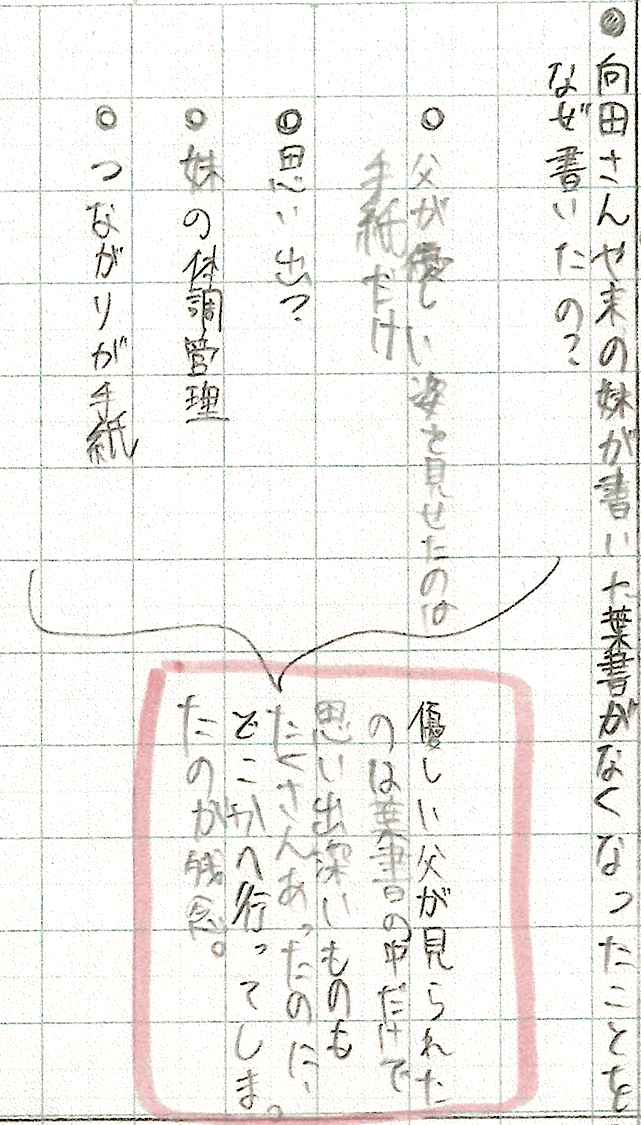 ◎向田さんや末の妹が書いた葉書がなくなったことを
なぜ書いたの？
◎父が優しい姿を見せたのは
手紙だけ
◎思い出？
◎妹の体調管理
◎つながりが手紙
優しい父が見られた
のは葉書の中だけで
思い出深いものも
たくさんあったのに、
どこかへ行ってしま。
たのが残念。